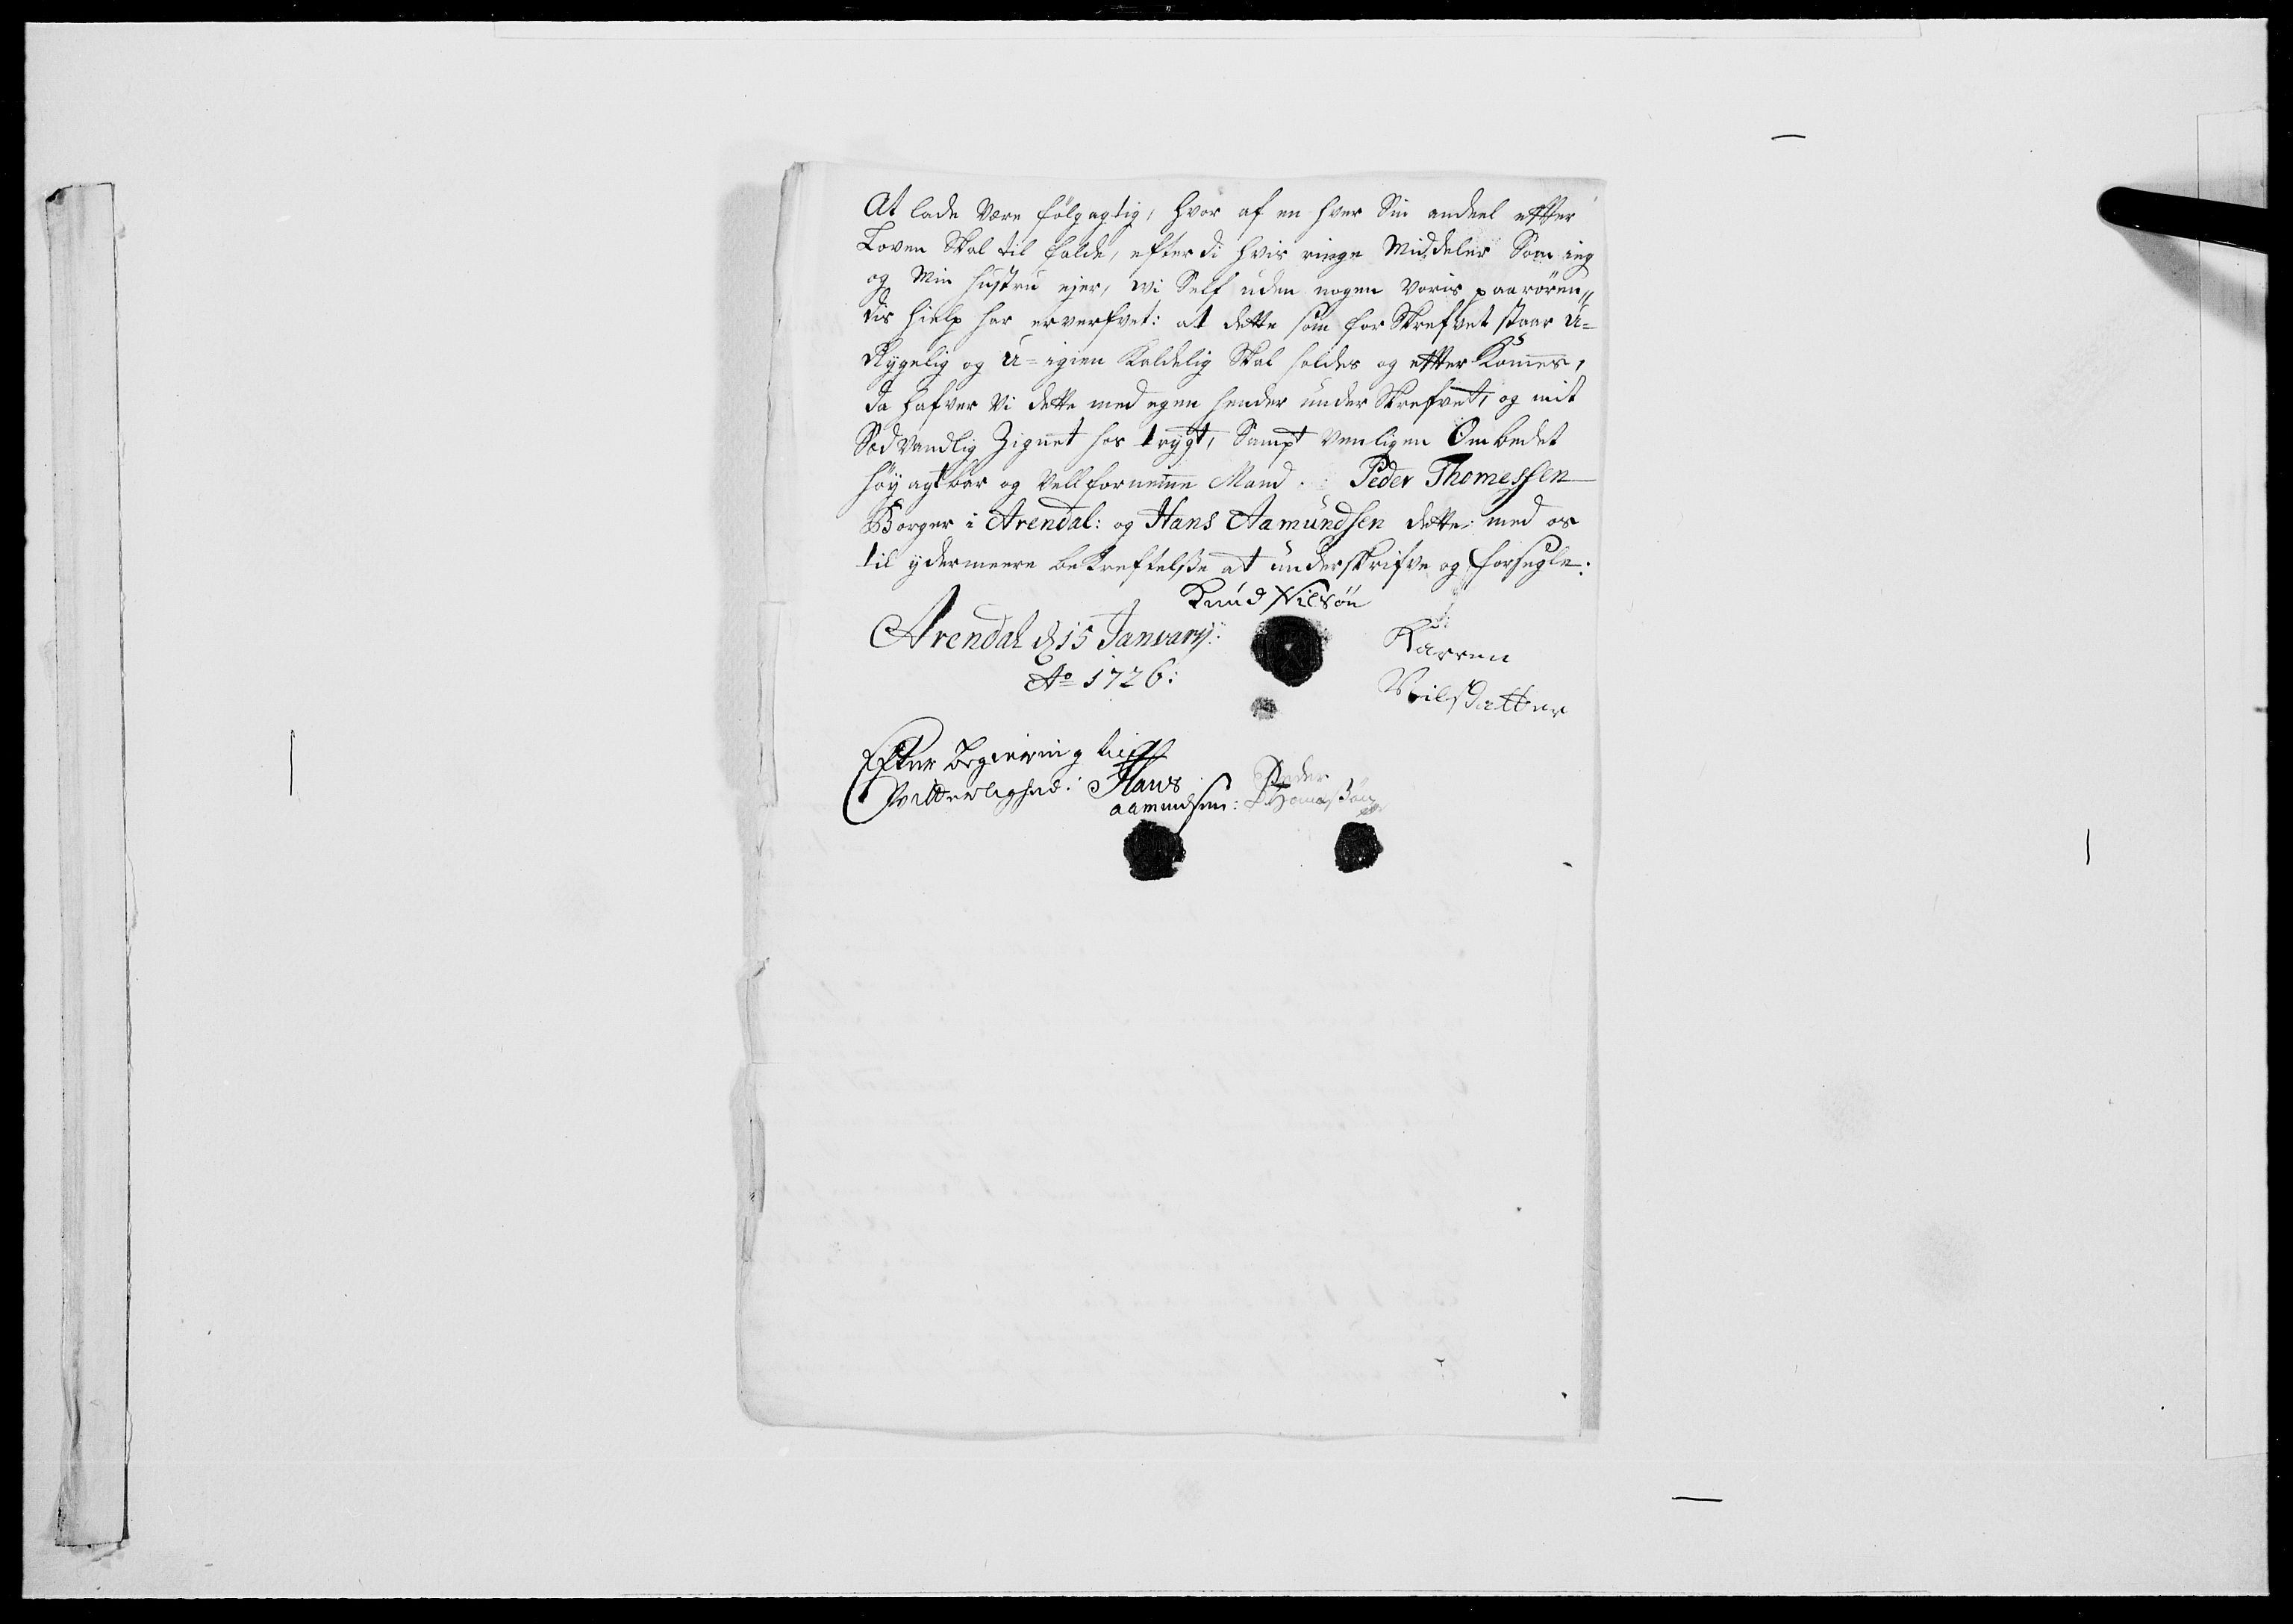 At lade Være følgagtig, hvor af en hver Sin andeel etter
Loven Skal til falde, efterdi hvis ringe Middeler Som ieg
og Min hustru ejer, wi Self uden nogen voris paarøren„
dis hielp har erverfvet: at dette som for Skrefvet staar U=
Rygelig og U=igien Kaldelig Skal holdes og etter Kommes,
da hafver Vi dette med egen hender under Skrefvet, og mit
Sædvandlig Zignet hos trygt, Sampt venligen Ombedet
høy agtbar og Vell fornemme Mand: Peder Thomessen
Borger i Arendal: og Hans Aamundsen dette med os
til ydermeere beKreftelsse at underskrifve og forsegle:
Knud Nilsøn
Arendal d 15 January:
Ao 1726:
Karren
Nilsdatter
Efter begiering til
Vitterlighed: Hans
aamundsen:
Peder
Thomessøn